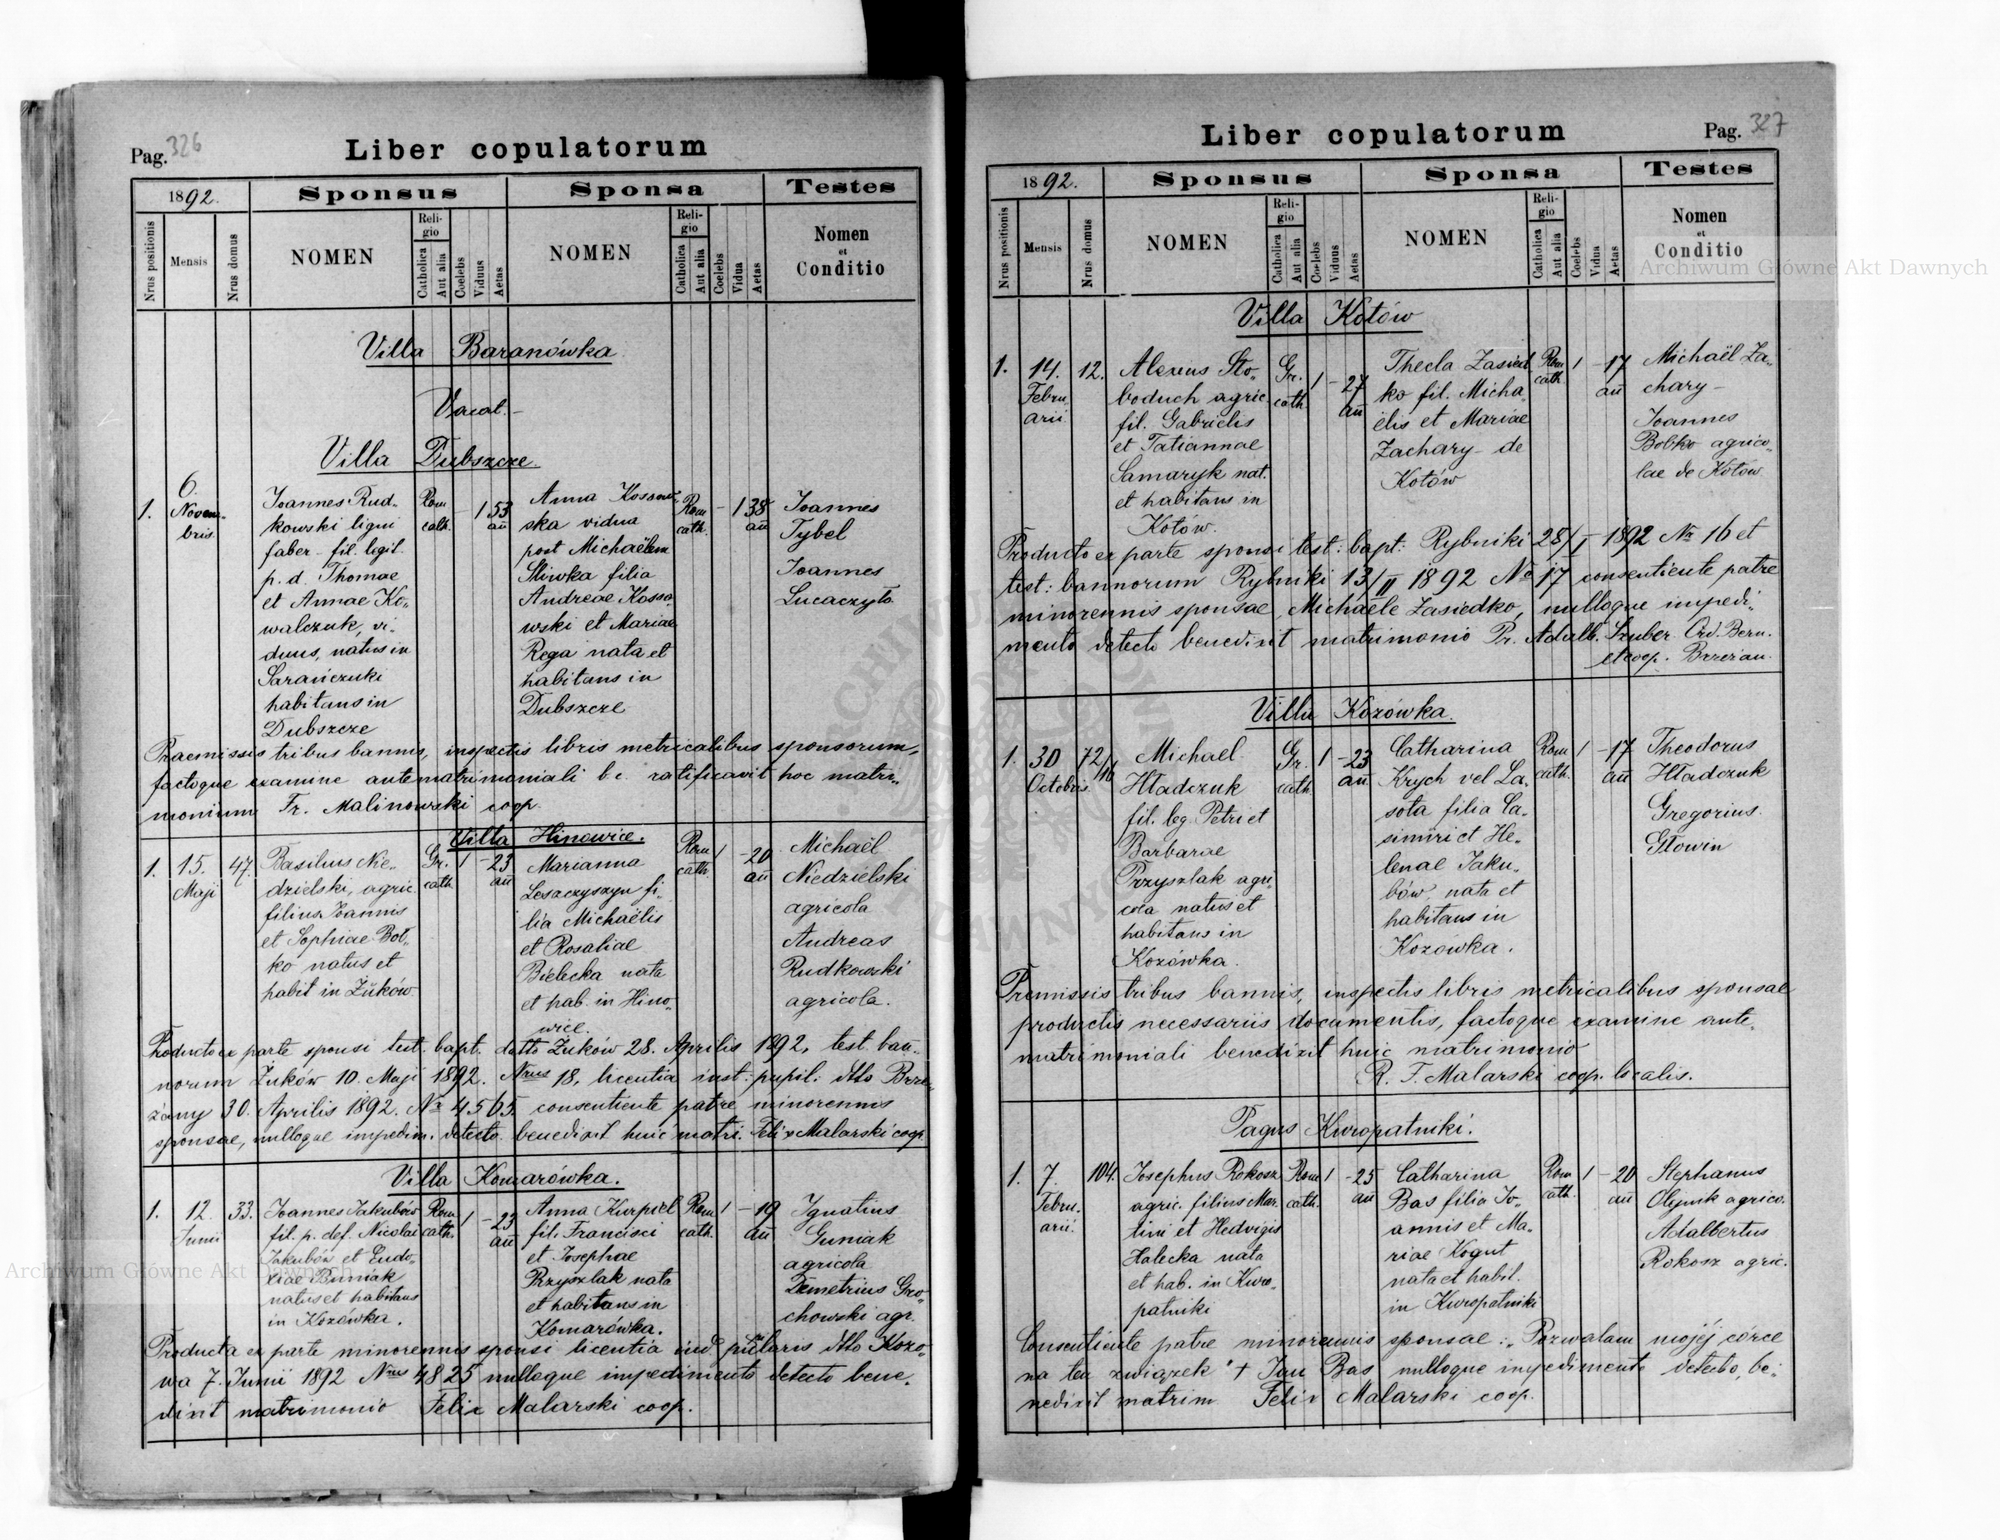 Pag. 326
Liber copulatorum
1892.
Sponsus
Sponsa
Testes
Nrus positionis
Mensis
Nrus domus
NOMEN
Religio
Catholica
Aut alia
Coelebs
Viduus
Aetas
NOMEN
Religio
Catholica
Aut alia
Coelebs
Vidua
Aetas
Nomen
et
Conditio
Villa Baranówka
Vacat.-
Villa Dubszcze.
1.
6.
Novem-
bris
Joannes Rud-
kowski ligni
faber - fil. legit.
p. d. Thomae
et Annae Ko-
walczuk, vi-
duus, natus in
Sarańczuki
habitans in
Dubszcze
Rom
cath.
- 1 53
an̄
Anna Kossow-
ska vidua
post Michaëlem
Śliwka filia
Andreae Kosso-
wski et Mariae
Rega nata et
habitans in
Dubszcze
Rom
cath.
- 1 38
an̄
Joannes
Tybel
Joannes
Lucaczyło
Praemissis tribus bannis, inspectis libris metricalibus sponsorum,
factoque examine antematrimoniali b. c. ratificavit hoc matri-
monium Fr. Malinowski coop.
Villa Hinowice.
1.
15.
Maji
47.
Basilius Nie-
dzielski, agric.
filius Joannis
et Sophiae Bot-
ko natus et
habit in Żuków
Gr.
cath
1 - 23
an̄
Marianna
Lesaczyszyn fi-
lia Michaëlis
et Rosaliae
Bielecka nata
et hab. in Hino-
wice.
Rom
cath
1 - 20
an̄
Michaël
Niedzielski
agricola
Andreas
Rudkowski
agricola.
Producto ex parte sponsi test. bapt. dtto Żuków 28. Aprilis 1892, test. ban-
norum Żuków 10. Maji 1892. Nrus 18, licentia inst: pupil: dtto Brze-
żany 30. Aprilis 1892. No 4565. consentiente patre minorennis
sponsae, nulloque impedim. detecto benedixit huic matri. Felix Malarski coop.
Villa Komarówka.
1.
12.
Junii
33.
Joannes Jakubów
fil. p. def. Nicolai
Jakubów et Eudo-
xiae Buniak
natus et habitans
in Kozówka.
Rom
cath.
1 - 23
an̄
Anna Kurpiel
fil. Francisci
et Josephae
Przyszlak nata
et habitans in
Komarówka.
Rom
cath.
1 - 19
an̄
Ignatius
Guniak
agricola
Demetrius Gro-
chowski agr.
Producta ex parte minorennis sponsi licentia iud. pupillaris dtto Kozo-
wa 7. Junii 1892 Nrus 4825 nulloque impedimento detecto bene-
dixit matrimonio Felix Malarski coop.
Pag. 327
Liber copulatorum
1892.
Sponsus
Sponsa
Testes
Nrus positionis
Mensis
Nrus domus
NOMEN
Religio
Catholica
Aut alia
Coelebs
Viduus
Aetas
NOMEN
Religio
Catholica
Aut alia
Coelebs
Vidua
Aetas
Nomen
et
Conditio
Villa Kotów
1.
14.
Febru-
arii
12.
Alexius Sło-
boduch agric.
fil. Gabrielis
et Tatiannae
Samaryk nat.
et habitans in
Kotów.
Gr.
cath
1 - 27
an̄
Thecla Zasied-
ko fil. Micha-
ëlis et Mariae
Zachary - de
Kotów
Rom
cath.
1 - 17
an̄
Michaël Za-
chary -
Joannes
Bobko agrico-
lae de Kotów
Producto ex parte sponsi test: bapt: Rybniki 28/I 1892 No 16 et
test: bannorum Rybniki 13/II 1892 No 17 consentiente patre
minorennis sponsae, Michaële Zasiedko, nulloque impedi-
mento detecto benedixit matrimonio Pr. Adalb. Szuber Ord. Bern.
et coop. Brzeżan.
Villa Kozówka.
1.
30
Octobris
72/16
Michael
Hładczuk
fil. leg. Petri et
Barbarae
Przyszlak agri-
cola natus et
habitans in
Kozówka.
Gr.
cath
1 - 23
an̄
Catharina
Krych vel La-
sota filia Ca-
simiri et He-
lenae Jaku-
bów, nata et
habitans in
Kozówka.
Rom
cath.
1 - 17
an̄
Theodorus
Hładczuk
Gregorius
Głowin
Premissis tribus bannis, inspectis libris metricalibus sponsae
productis necessariis documentis, factoque examine ante-
matrimoniali benedixit huic matrimonio
R. F. Malarski coop. localis.
Pagus Kuropatniki.
1.
7.
Febru-
arii
104.
Josephus Rokosz
agric. filius Mar-
tini et Hedvigis
Halecka nata
et hab. in Kuro-
patniki
Rom
cath.
1 - 25
an̄
Catharina
Bas filia Jo-
annis et Ma-
riae Kogut
nata et habit.
in Kuropatniki
Rom
cath.
1 - 20
an̄
Stephanus
Olejnik agrico.
Adalbertus
Rokosz agric.
Consentiente patre minorennis sponsae: „Pozwalam mojéj córce
na ten związek" + Jan Bas nulloque impedimento detecto, be-
nedixit matrim Felix Malarski coop.
Archiwum Główne Akt Dawnych
Archiwum Główne Akt Dawnych